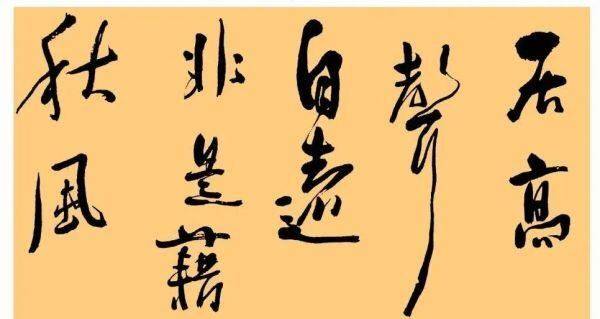 居高
聲
自遠
非是藉
秋風